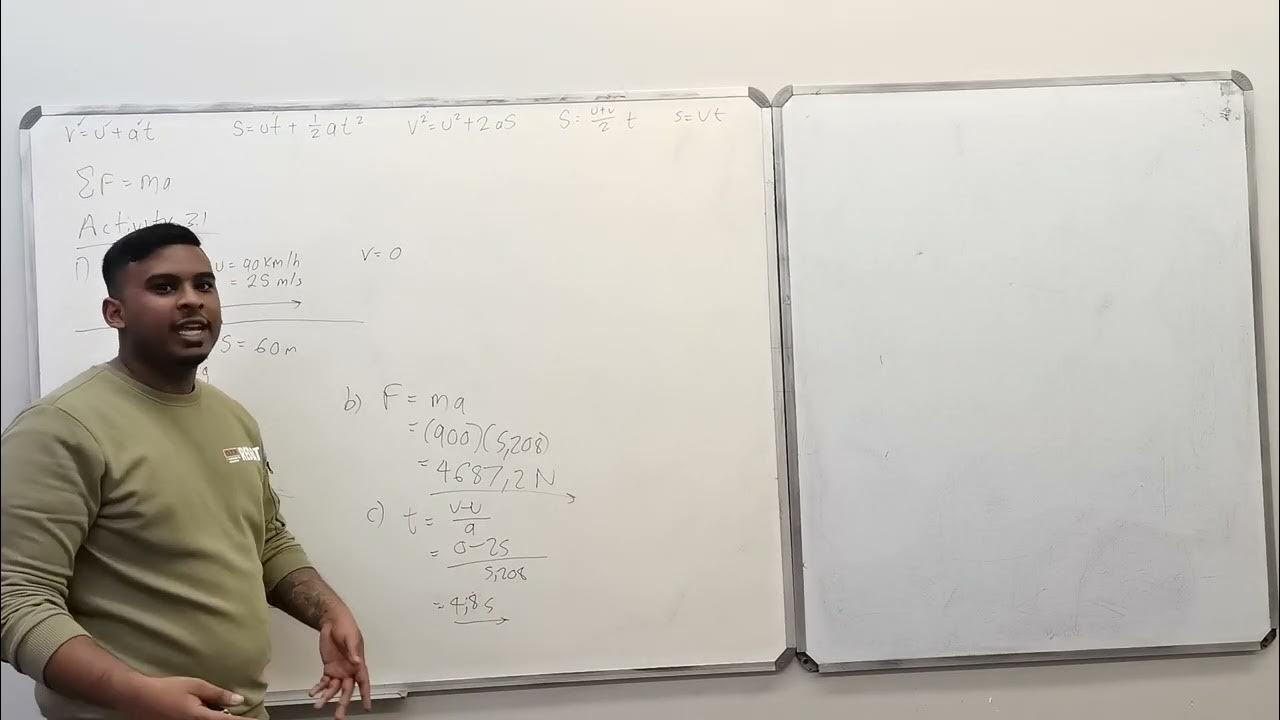 v = u + at
S = ut + 1/2 at²
V² = u² + 2aS
S = (u+v)/2 t
s = vt
ΣF = ma
Activity 3.1
1)
u = 90 km/h
= 25 m/s
v = 0
S = 60 m
b) F = ma
= (900)(5,208)
= 4687,2 N
c) t = (v-u)/a
= (0-25)/5,208
= 4,8 s